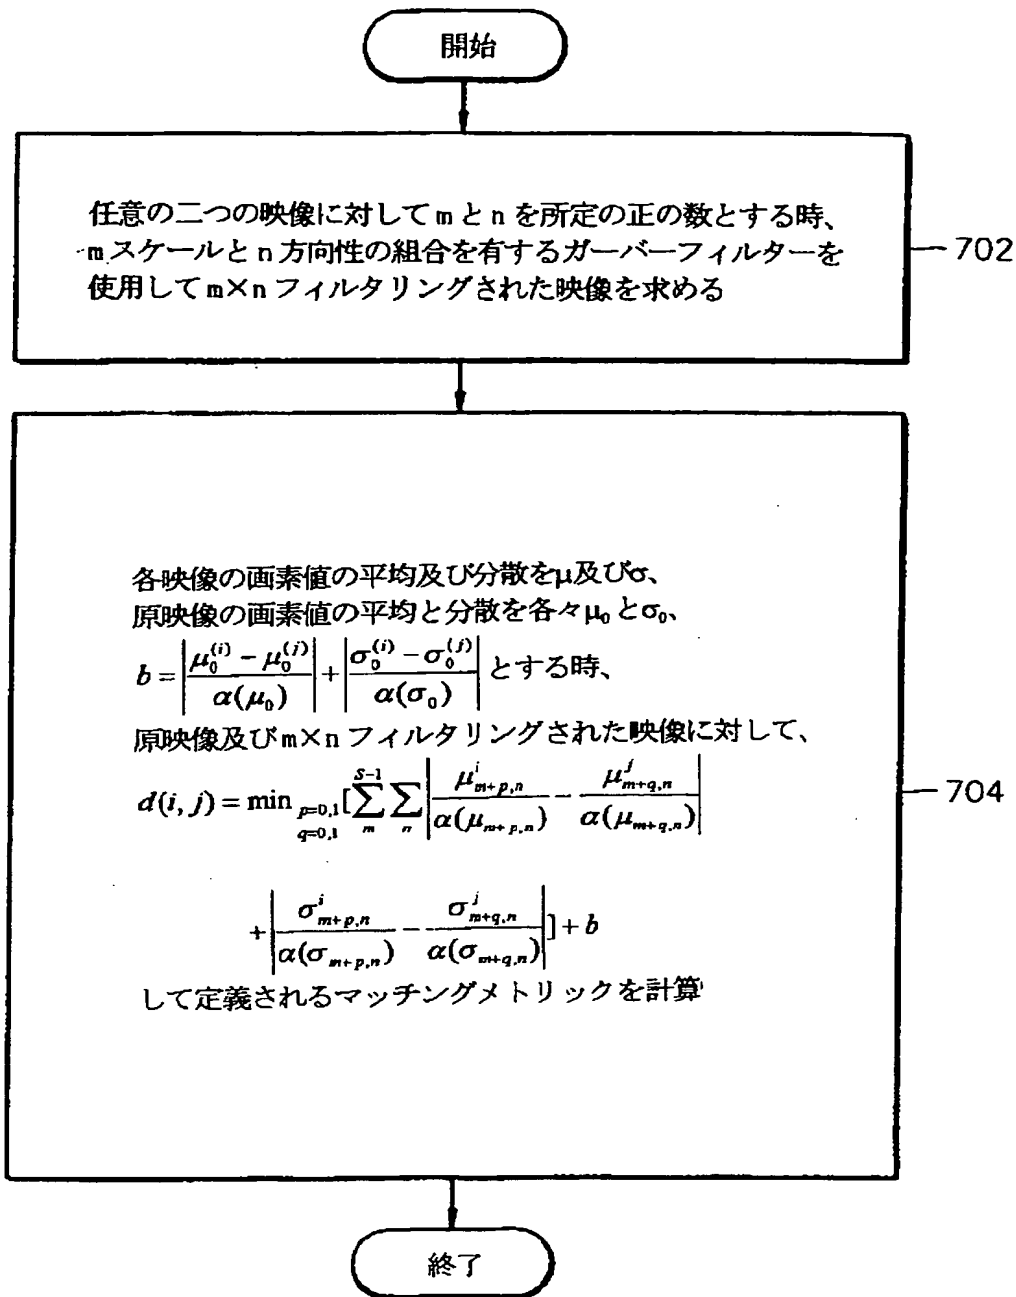 開始
任意の二つの映像に対してmとnを所定の正の数とする時、
mスケールとn方向性の組合を有するガーバーフィルターを
使用してm×nフィルタリングされた映像を求める
702
各映像の画素値の平均及び分散をμ及びσ、
原映像の画素値の平均と分散を各々μ₀とσ₀、
b = |(μ₀^(i) − μ₀^(j)) / α(μ₀)| + |(σ₀^(i) − σ₀^(j)) / α(σ₀)| とする時、
原映像及びm×nフィルタリングされた映像に対して、
d(i, j) = min_{p=0,1 q=0,1} [∑_m^{S−1} ∑_n |μ^i_{m+p,n} / α(μ_{m+p,n}) − μ^j_{m+q,n} / α(μ_{m+q,n})|
704
+ |σ^i_{m+p,n} / α(σ_{m+p,n}) − σ^j_{m+q,n} / α(σ_{m+q,n})|] + b
して定義されるマッチングメトリックを計算
終了